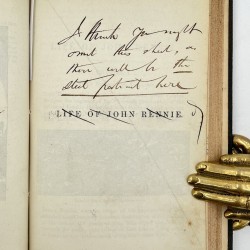 I think you might
omit this & he, as
there will be the
steel portrait here
LIFE OF JOHN RENNIE.